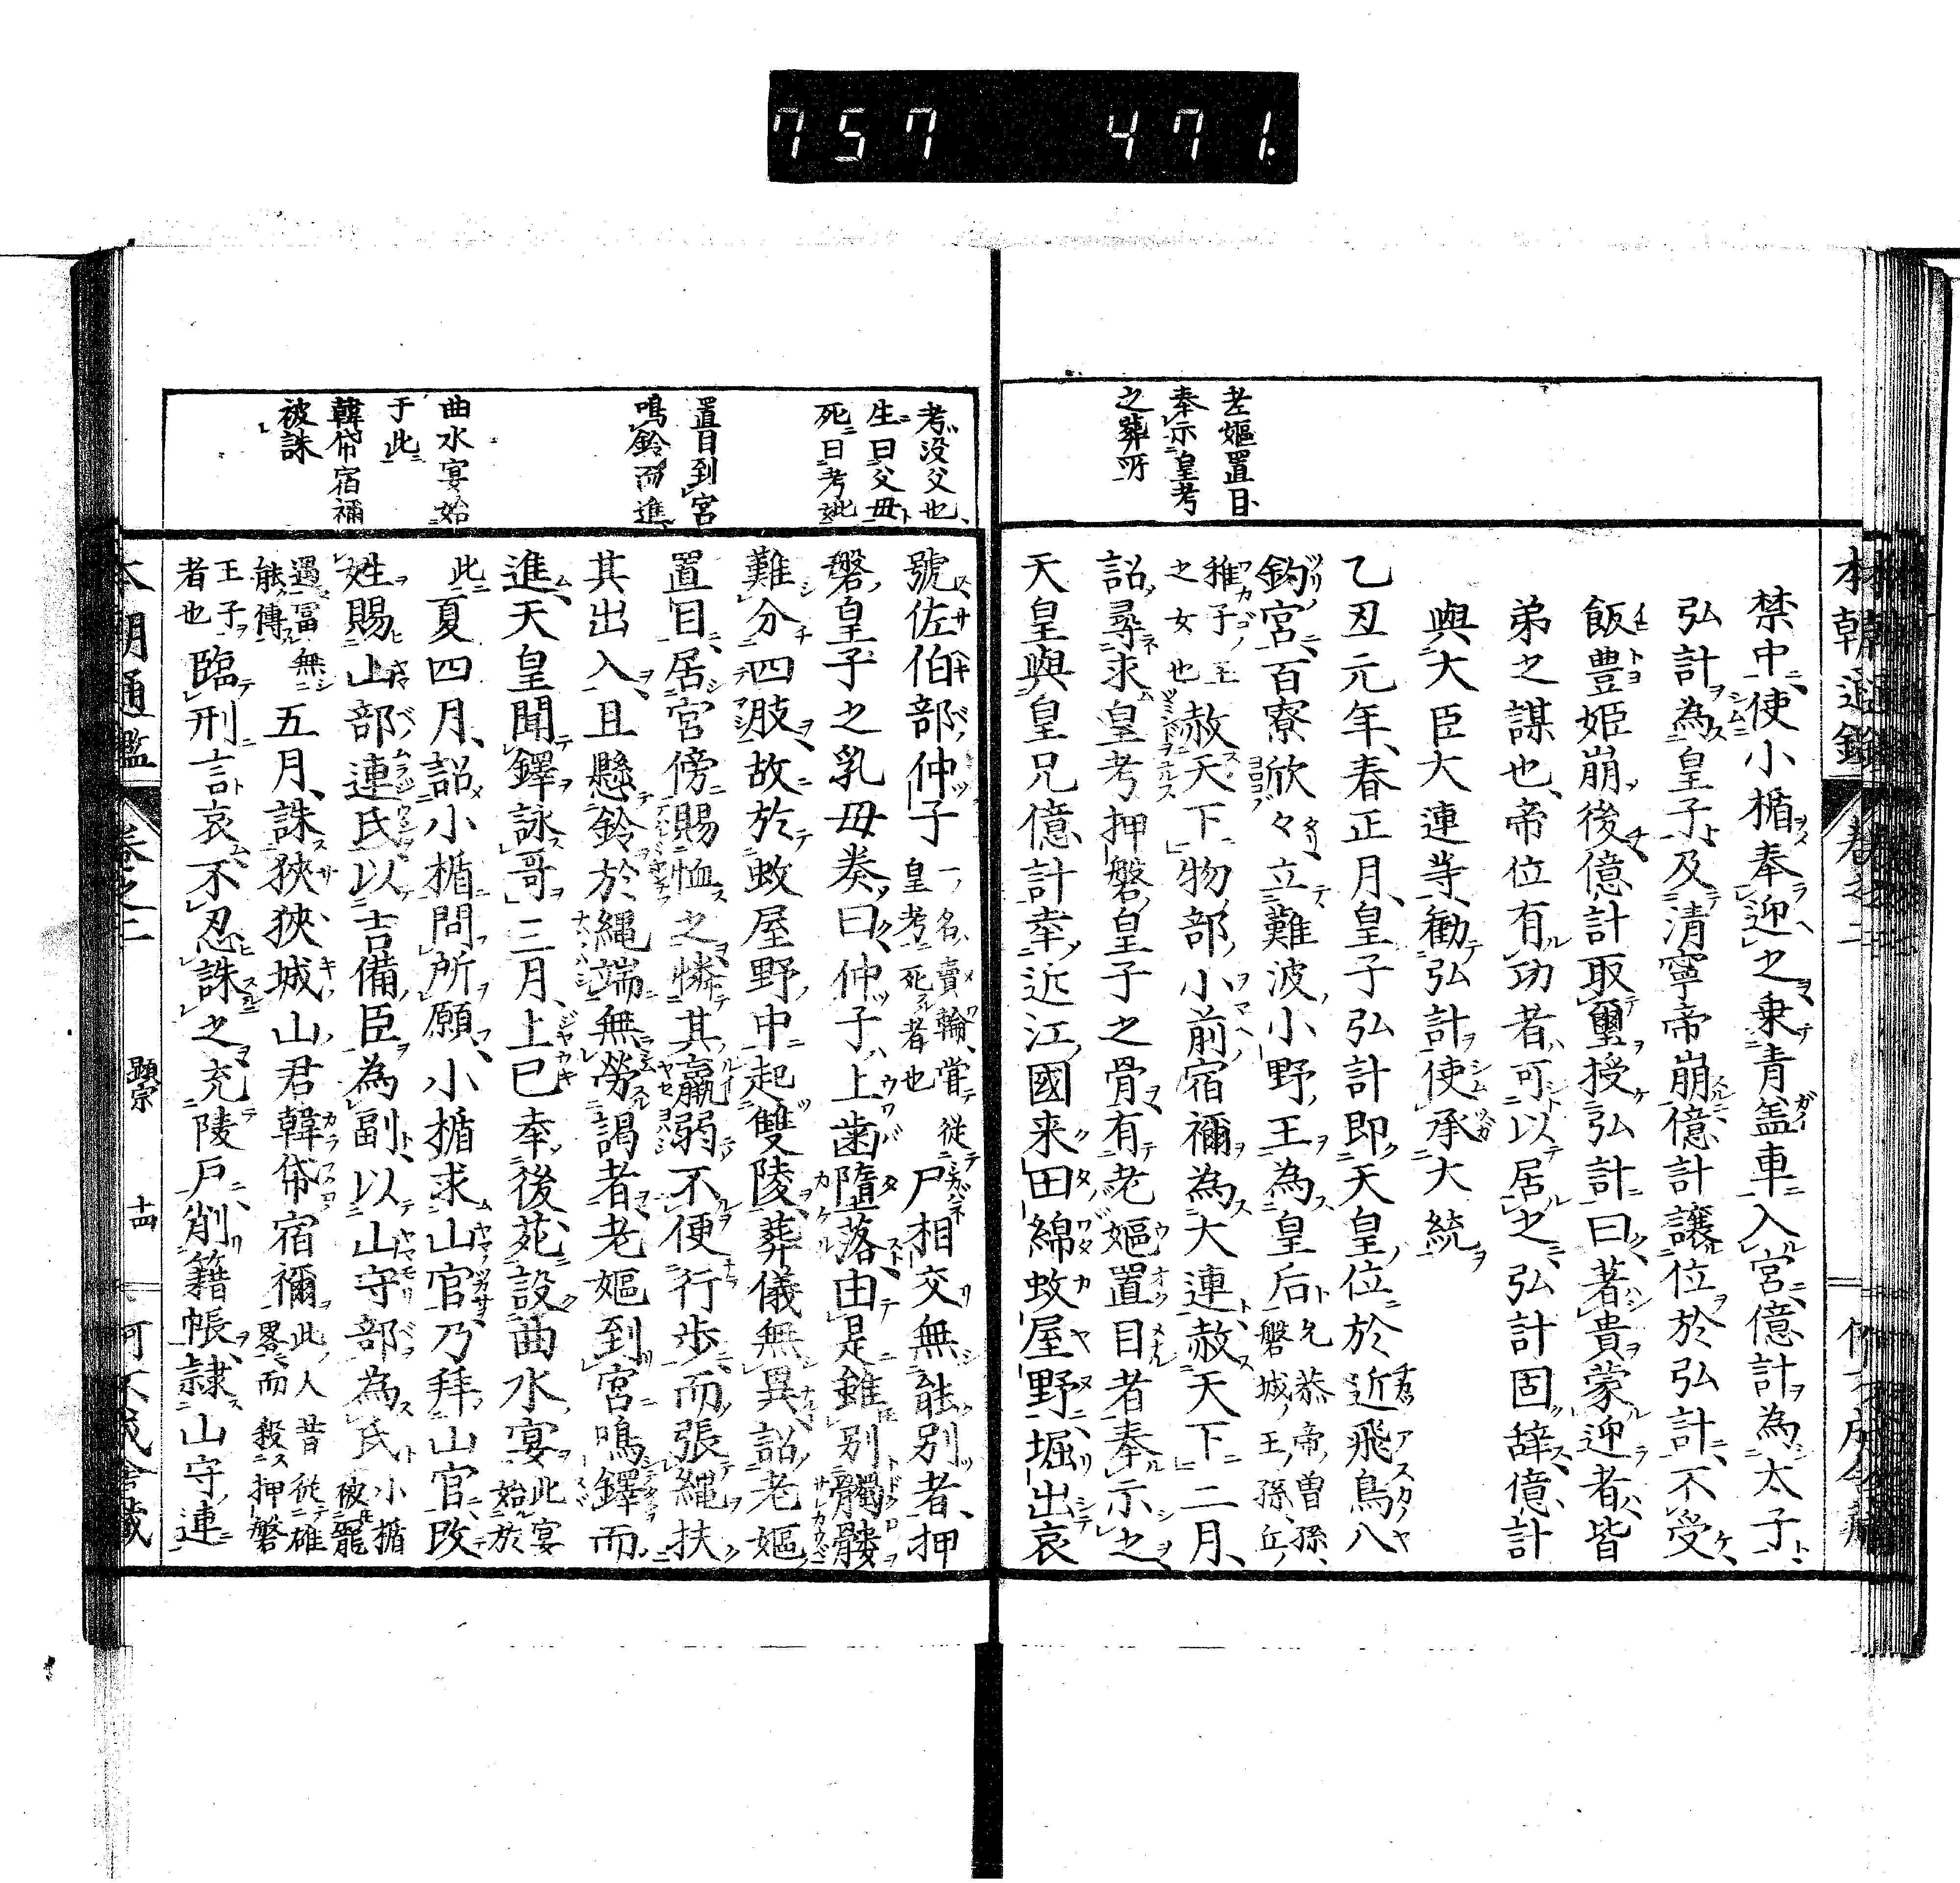 757 471
老嫗置目
奉示皇考
之葬所
禁中使小楯奉迎之乗青盖車入宮億計為太子
弘計為皇子及清寧帝崩億計譲位於弘計不受
飯豊姫崩後億計取璽授弘計曰著貴蒙迎者皆
弟之謀也帝位有功者可以居之弘計固辞億計
與大臣大連等勧弘計使承大統
乙丑元年春正月皇子弘計即天皇位於近飛鳥八
釣宮百寮欣々立難波小野王為皇后允恭帝曽孫磐城王孫丘
稚子王之女也赦天下物部小前宿禰為大連赦天下二月
詔尋求皇考押磐皇子之骨有老嫗置目者奉示之
天皇與皇兄億計幸近江國来田綿蚊屋野堀出哀
考没父也
生曰父母
死曰考妣
置目到宮
鳴鈴而進
曲水宴始
于此
韓帒宿禰
被誅
號佐伯部仲子一名賣輪嘗従皇考死者也尸相交無能別者押
磐皇子之乳母奏曰仲子上歯墮落由是雖別髑髏
難分四肢故於蚊屋野中起雙陵葬儀無異詔老嫗
置目居宮傍賜恤之憐其羸弱不便行歩而張縄扶
其出入且懸鈴於縄端無勞謁者老嫗到宮鳴鐸而
進天皇聞鐸詠哥三月上巳幸後苑設曲水宴此宴始於
此夏四月詔小楯問所願小楯求山官乃拜山官改
姓賜山部連氏以吉備臣為副以山守部為氏小楯被寵
遇冨無能傳五月誅狹狹城山君韓帒宿禰此人昔従雄畧而殺押磐
王子者也臨刑言哀不忍誅之充陵戸削籍帳隷山守連
本朝通鑑 卷之二 顯宗 十四